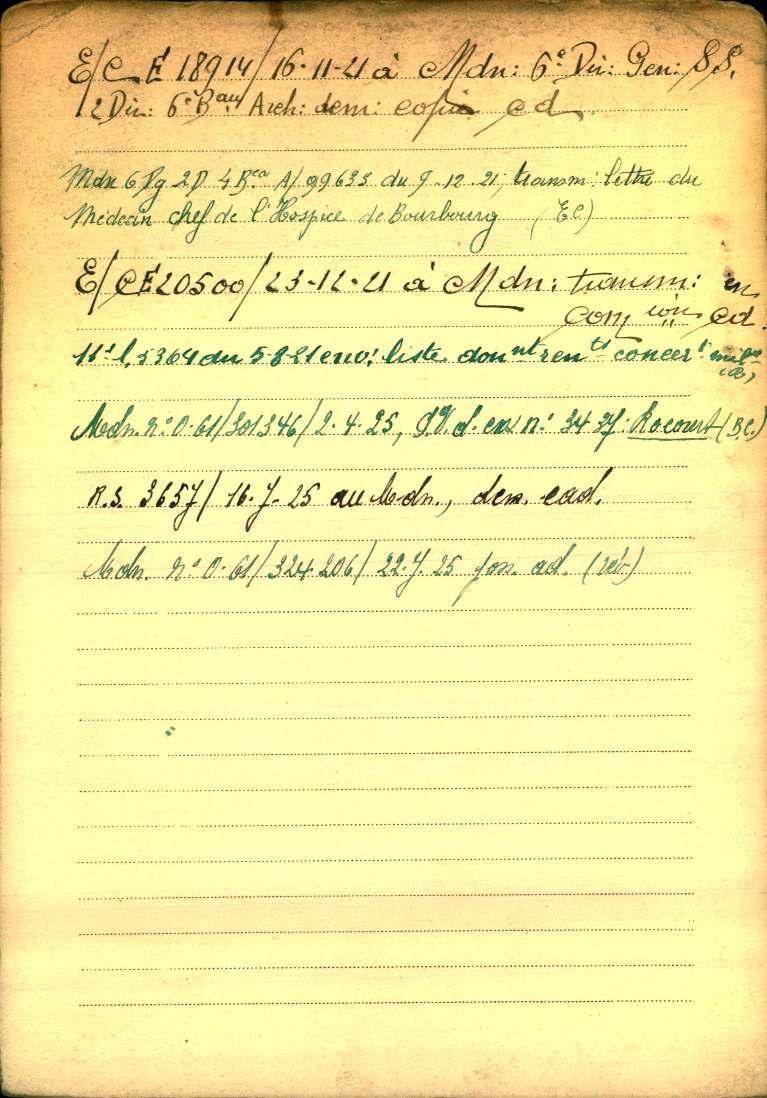 E/C E 18914/ 16-11-21 à Mdn: 6e Dir: Gen: S.S.
2 Dir: 6e Bau Arch: dem: copie cd
Mdn 6 Dg 2D 4 Bea A/ 99635 du 9-12-21, transm: lettre du
Médecin chef de l'Hospice de Bourbourg (EC)
E/CE 20500/ 23-12-21 à Mdn: transm: en
com ion cd.
5364 du 5-8-21 env: liste donnt rents concert
Mdn. n° 0-61/301346/ 2.4.25, d. ex n° 3437. Rocourt (B.C.)
R.S. 3657/ 16.7.25 au Mdn., dem. ead.
Mdn. n° 0-61/324206/ 22.7.25 ad. (rév.)